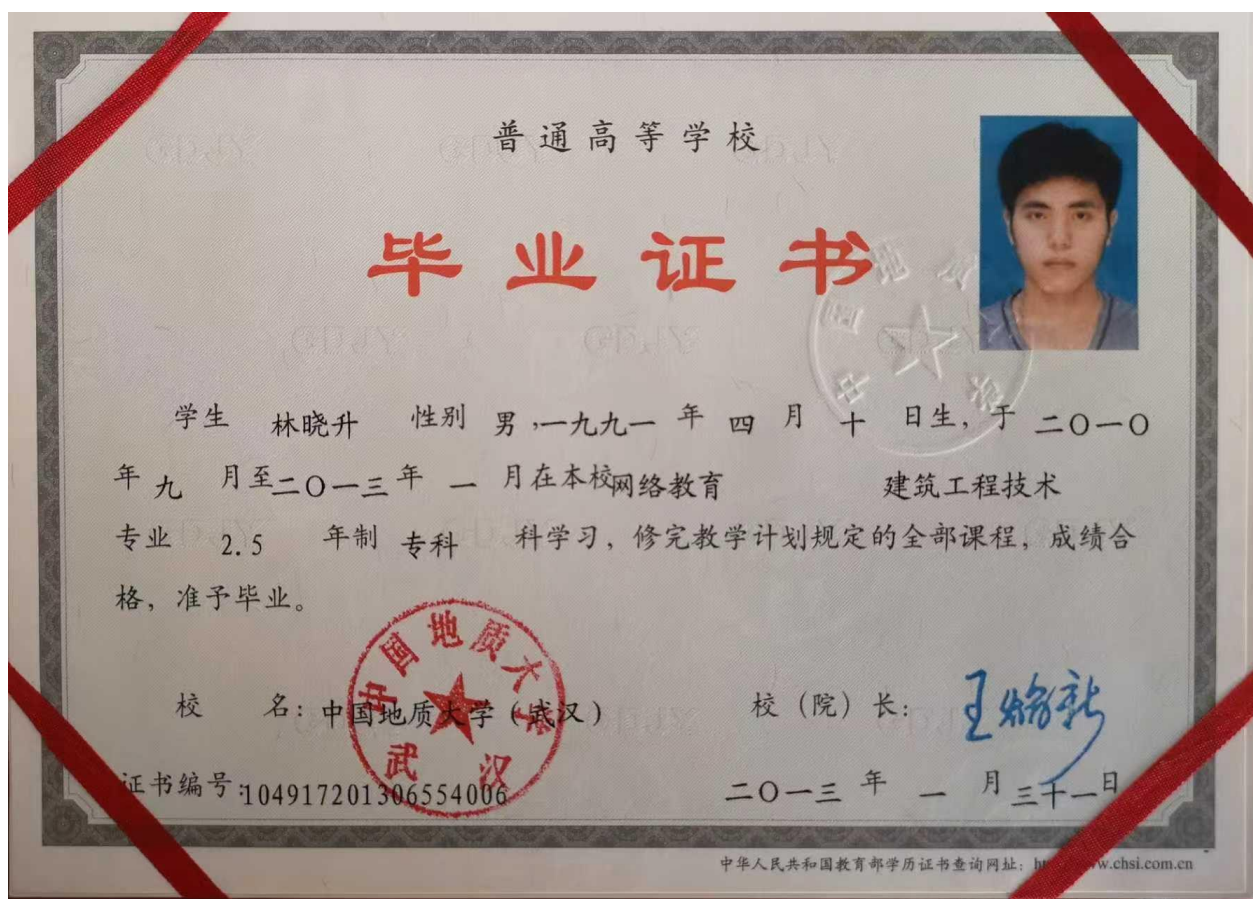 普通高等学校
毕业证书
学生 林晓升 性别 男,一九九一 年 四 月 十 日生，于 二〇一〇
年 九 月至二〇一三年 一 月在本校网络教育 建筑工程技术
专业 2.5 年制 专科 科学习，修完教学计划规定的全部课程，成绩合
格，准予毕业。
中国地质大学
武汉
校 名：中国地质大学（武汉） 校（院）长：王焰新
证书编号:104917201306554006 二〇一三 年 一 月三十一日
中华人民共和国教育部学历证书查询网址： w.chsi.com.cn